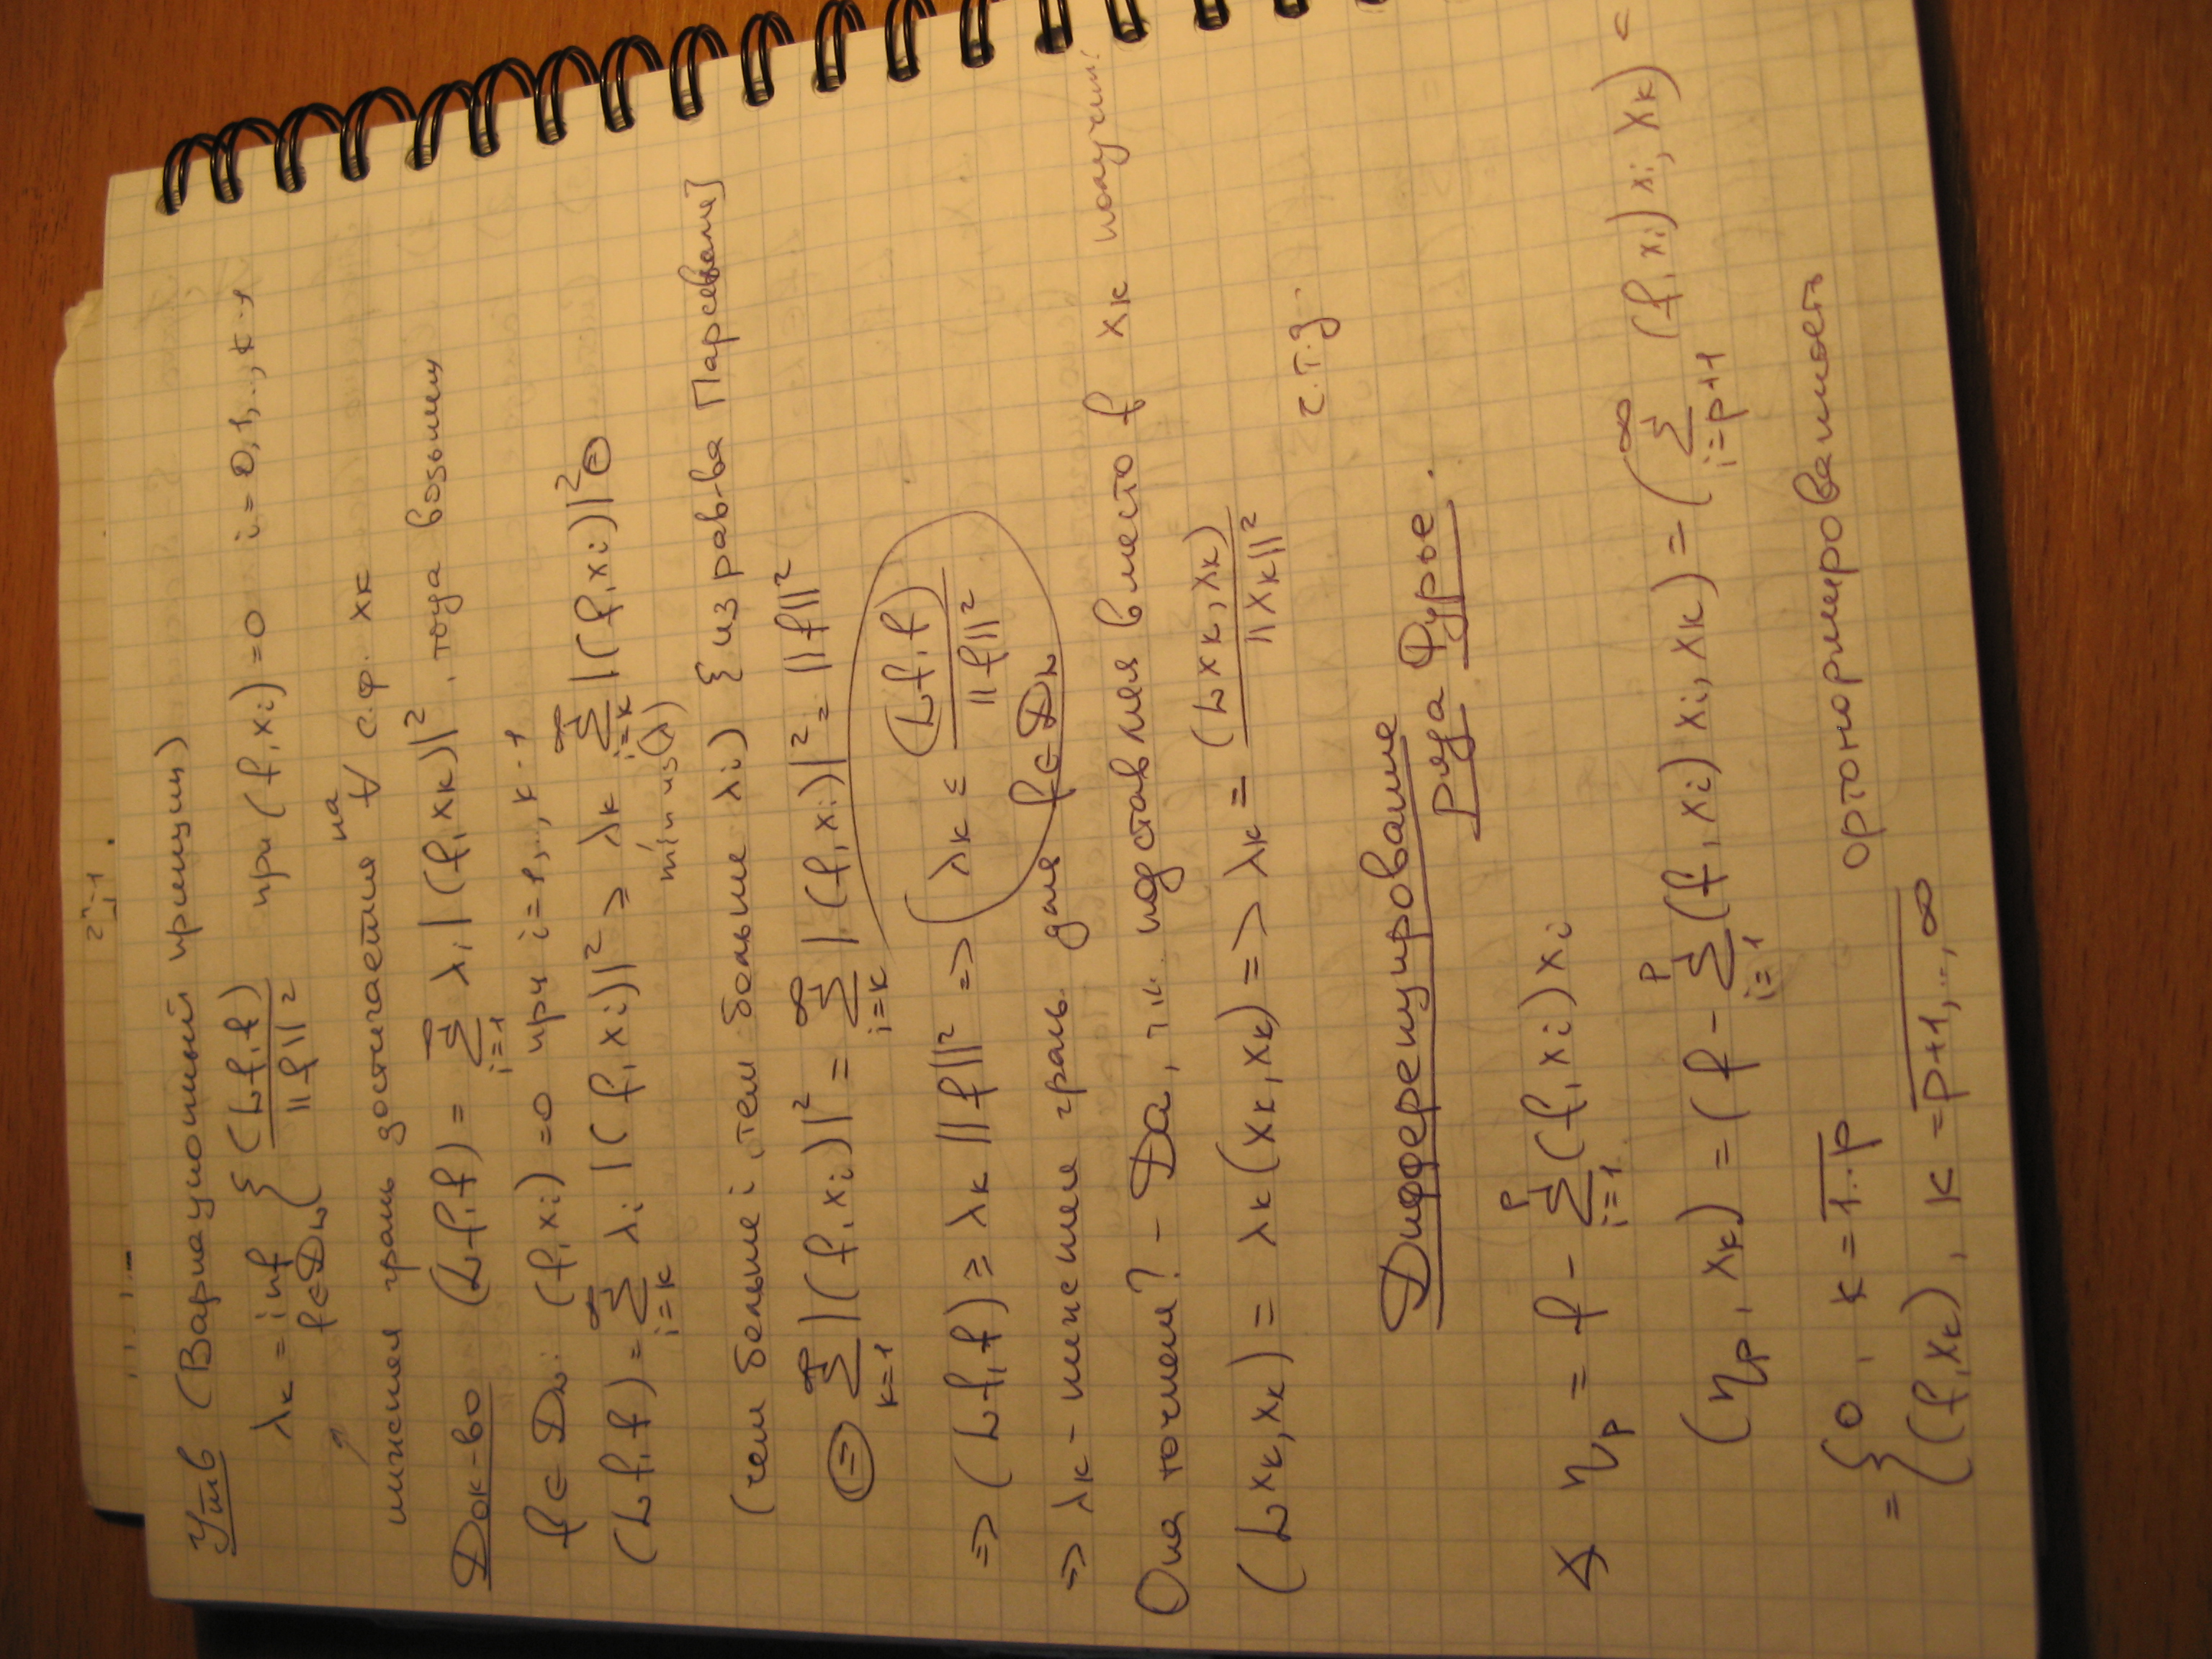 Утв (Вариационный принцип)
λk = inf f∈D_L { (Lf,f) / ||f||² при (f,xi)=0 i=0,1,..,k-1
нижняя грань достигается на ∀ с.ф. xk
Док-во (Lf,f) = ∞ Σ i=1 λi |(f,xk)|², тогда возьмем
f∈D_L: (f,xi)=0 при i=1,..,k-1
(Lf,f) = ∞ Σ i=k λi |(f,xi)|² ≥ λk ∞ Σ i=k |(f,xi)|² ⊜
min из (λ)
(чем больше i, тем больше λi) {из рав-ва Парсеваля}
⊜ ∞ Σ k=1 |(f,xi)|² = ∞ Σ i=k |(f,xi)|² = ||f||²
=> (Lf,f) ≥ λk ||f||² => (λk ≤ (Lf,f) / ||f||²
=> λk - нижняя грань для f∈D_L
Она точная? - Да, т.к. подставляя вместо f xk получим:
(Lxk,xk) = λk (xk,xk) => λk = (Lxk,xk) / ||xk||²
ч.т.д.
Дифференцирование
ряда Фурье.
∢ ηp = f - p Σ i=1 (f,xi) xi
(ηp, xk) = (f - p Σ i=1 (f,xi) xi, xk) = ( ∞ Σ i=p+1 (f,xi) xi, xk) =
= { 0, k=1..p ортонормированность
(f,xk), k=p+1,..,∞